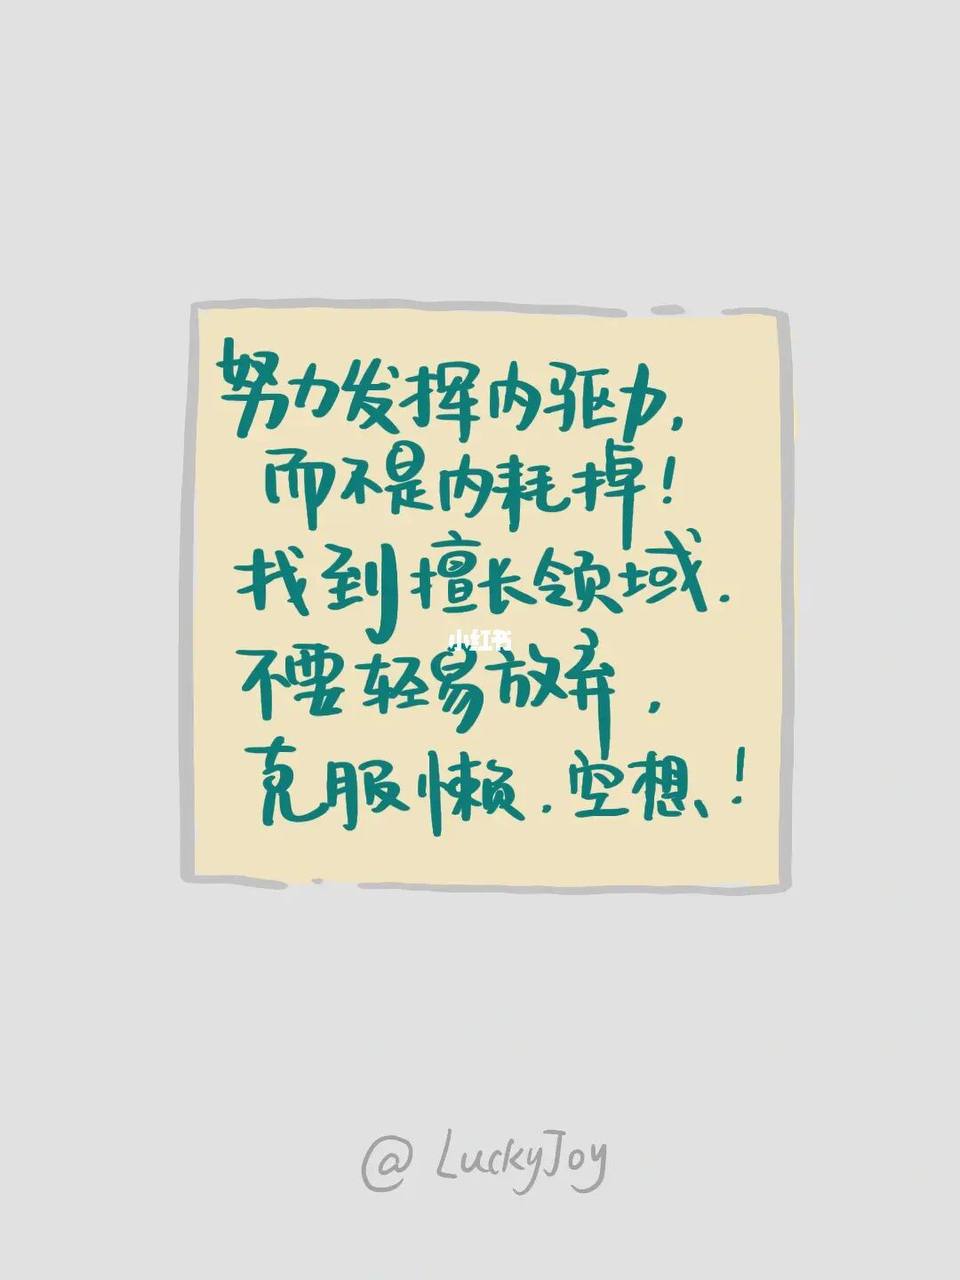 努力发挥内驱力,
而不是内耗掉!
找到擅长领域.
小红书
不要轻易放弃.
克服懒.空想、!
@LuckyJoy